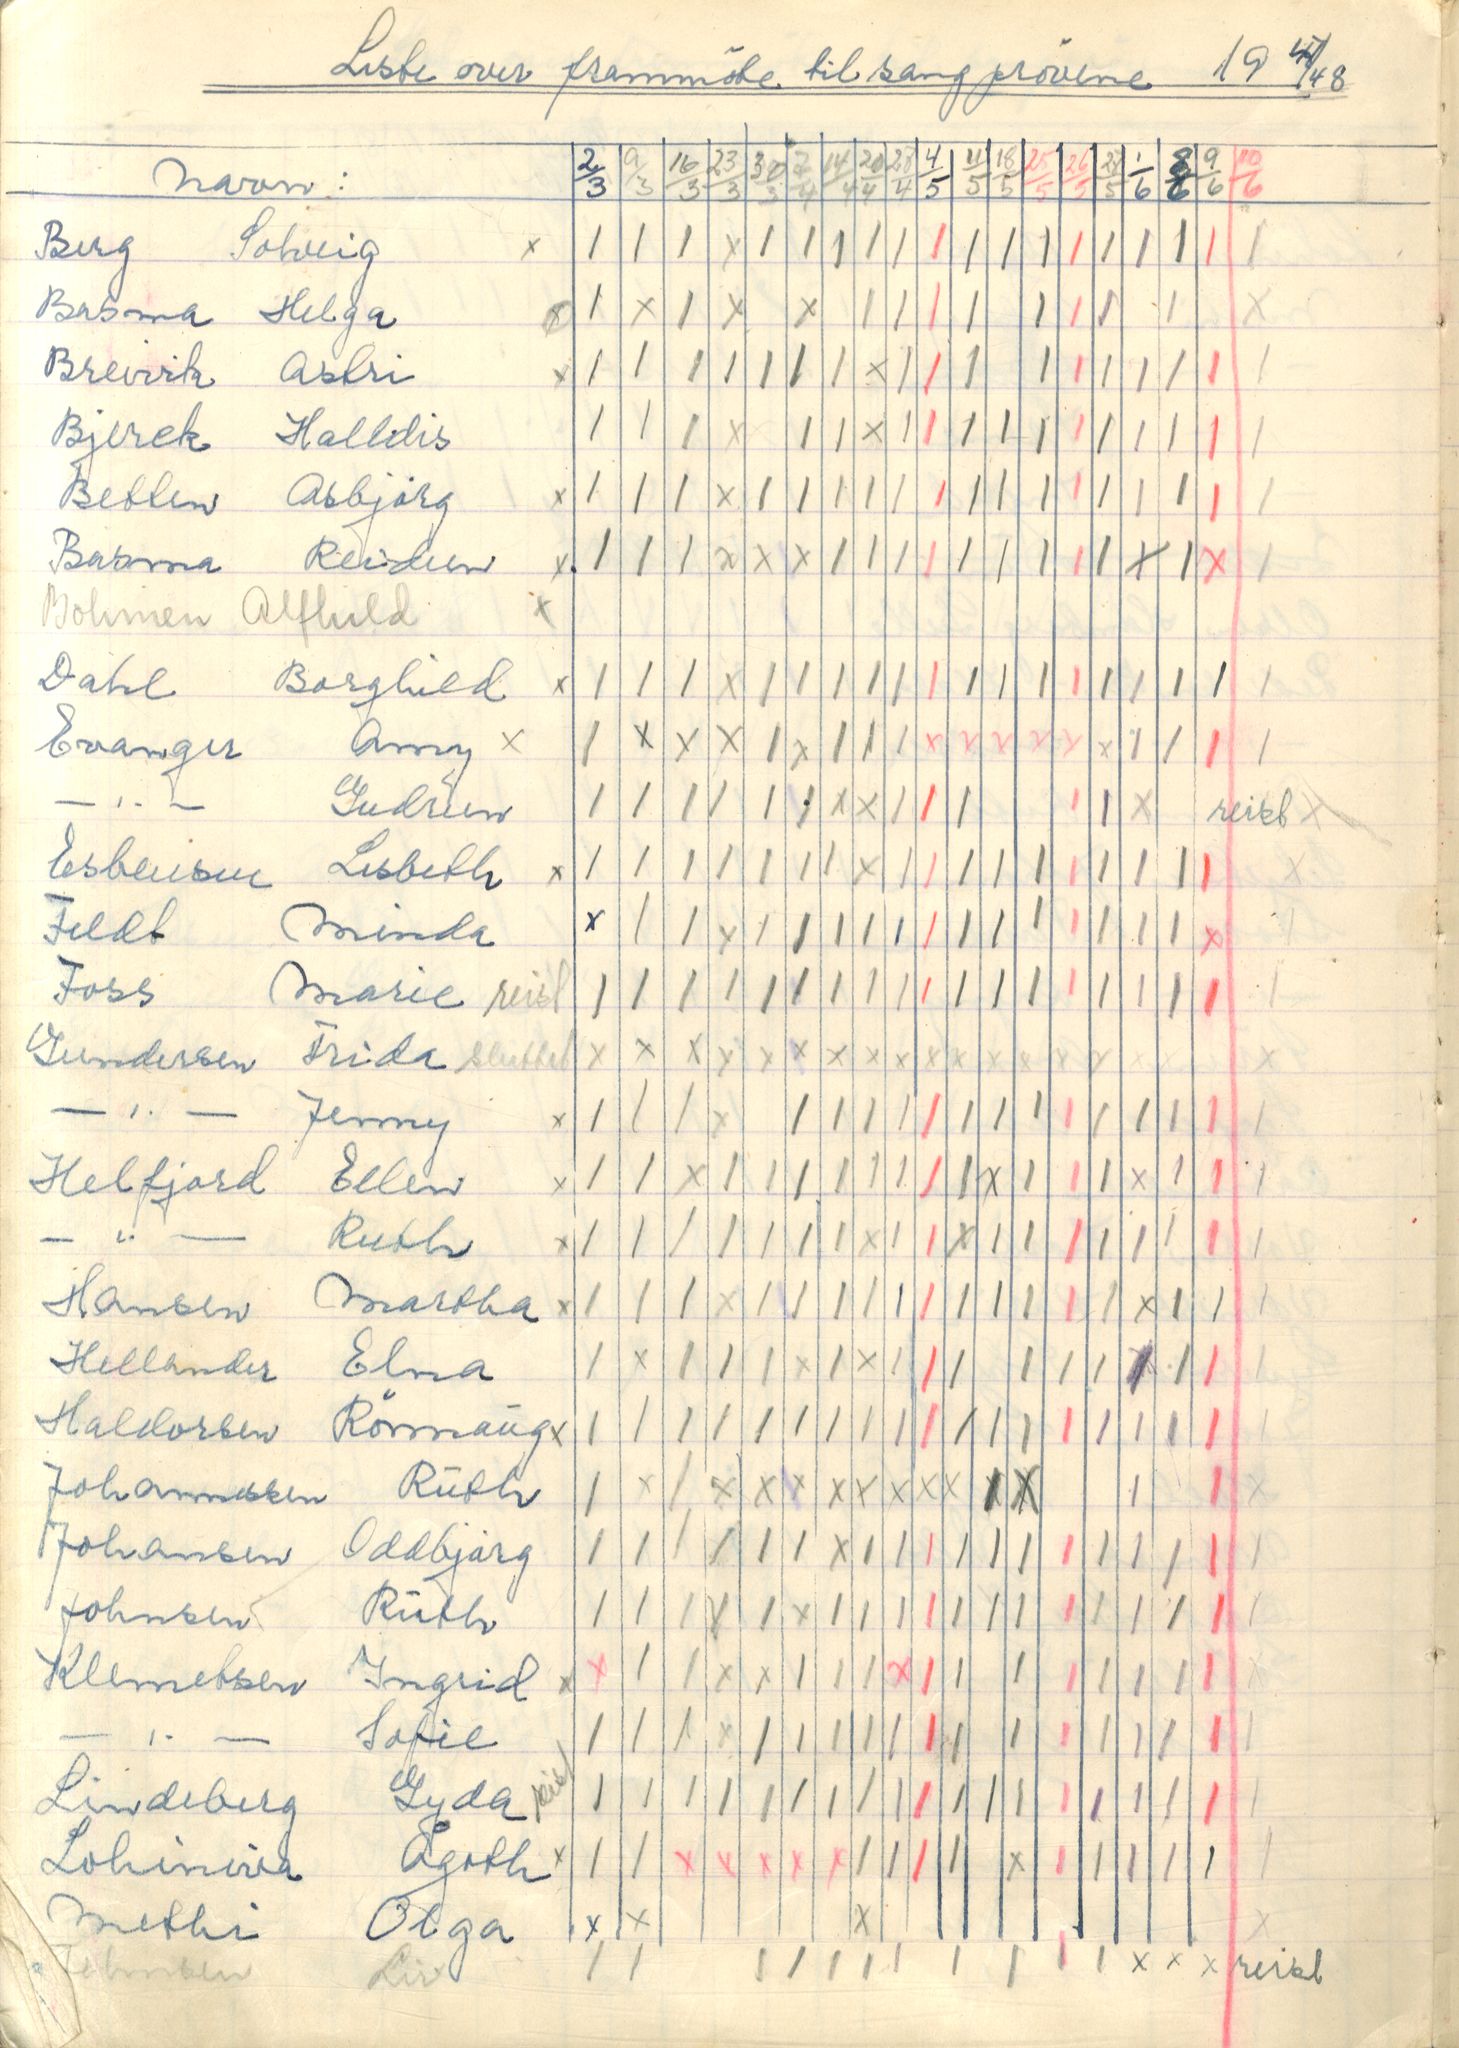 Liste over frammöte til sangprövene 19 47/48
Navn: 2/3 9/3 16/3 23/3 30/3 7/4 14/4 20/4 28/4 4/5 11/5 18/5 25/5 26/5 28/5 1/6 8/6 9/6 10/6
Berg Solveig x | | | x | | | | | | | | | | | | | | |
Basma Helga x | x | x x | | | | | | | | x
Breivik Astri x | | | | | | | x | | | | | | | | | |
Bjerek Halldis | | | x | | x | | | | | | | | | | |
Betten Asbjörg x | | | x | | | | | | | | | | | | | | |
Basma Reidun x | | | x x x | | | | | | | | | x | x |
Bohinen Alfhild x
Dahl Borghild x | | | x | | | | | | | | | | | | | | |
Evanger Amy x | x x x | x | | | x x x x x x | | | |
— " — Gudrun | | | | | | x x | | | | | x reist x
Esbensen Lisbeth x | | | | | | | x | | | | | | | | | | x
Feldt Minda x | | x | | | | | | | | | | | | | x
Foss Marie reist | | | | | | | | | | | | | | | | | | |
Gundersen Frida sluttet x x x x x x x x x x x x x x x x x x
— " — Jenny x | | | x | | | | | | | | | | | | | |
Helfjord Ellen x | | x | | | | | | | | x | | | x | | |
— " — Ruth x | | | | | | | x | | x | | | | | | | |
Hansen Martha x | | | x | | | | | | | | | | | x | | |
Hellander Elna | x | | | x | x | | | | | | | | |
Haldorsen Rönnaug x | | | | | | | | | | | | | | | | | | |
Johannessen Ruth | x | x x x x x x x x x x | | x
Johansen Oddbjörg | | | | | | x | | | | | | | | | | | |
Johnsen Ruth | | | | | x | | | | | | | | | | | | |
Klemetsen Ingrid x x | | x x | | | x | | | | | | | | x
— " — Sofie | | | x | | | | | | | | | | | | | |
Lindeberg Gyda reist | | | | | | | | | | | | | | | | | | |
Lohiniva Agoth x | | x x x x x | | | | x | | | | | |
Methi Olga x x x x
Johnsen Liv | | | | | | | | | | | x x x reist